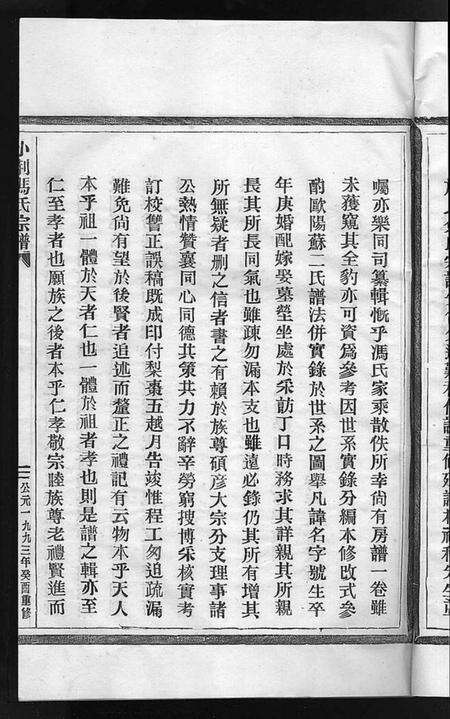 囑亦樂同司纂輯慨乎馮氏家乘散佚所幸尚有房譜一卷雖
未獲窺其全豹亦可資爲參考因世系實錄分編本修改式參
酌歐陽蘇二氏譜法併實錄於世系之圖舉凡諱名字號生卒
年庚婚配嫁娶墓塋坐處於采訪丁口時務求其詳親其所親
長其所長同氣也雖疎勿漏本支也雖遠必錄仍其所有增其
所無疑者删之信者書之有賴於族尊碩彥大宗分支理事諸
公熱情贊襄同心同德共策共力不辭辛勞窮搜博采核實考
訂校讐正誤稿既成印付梨棗五越月告竣惟程工匆迫疏漏
難免尚有望於後賢者追述而釐正之禮記有云物本乎天人
本乎祖一體於天者仁也一體於祖者孝也則是譜之輯亦至
仁至孝者也願族之後者本乎仁孝敬宗睦族尊老禮賢進而
馮氏宗譜
二 公元一九九三年癸酉重修